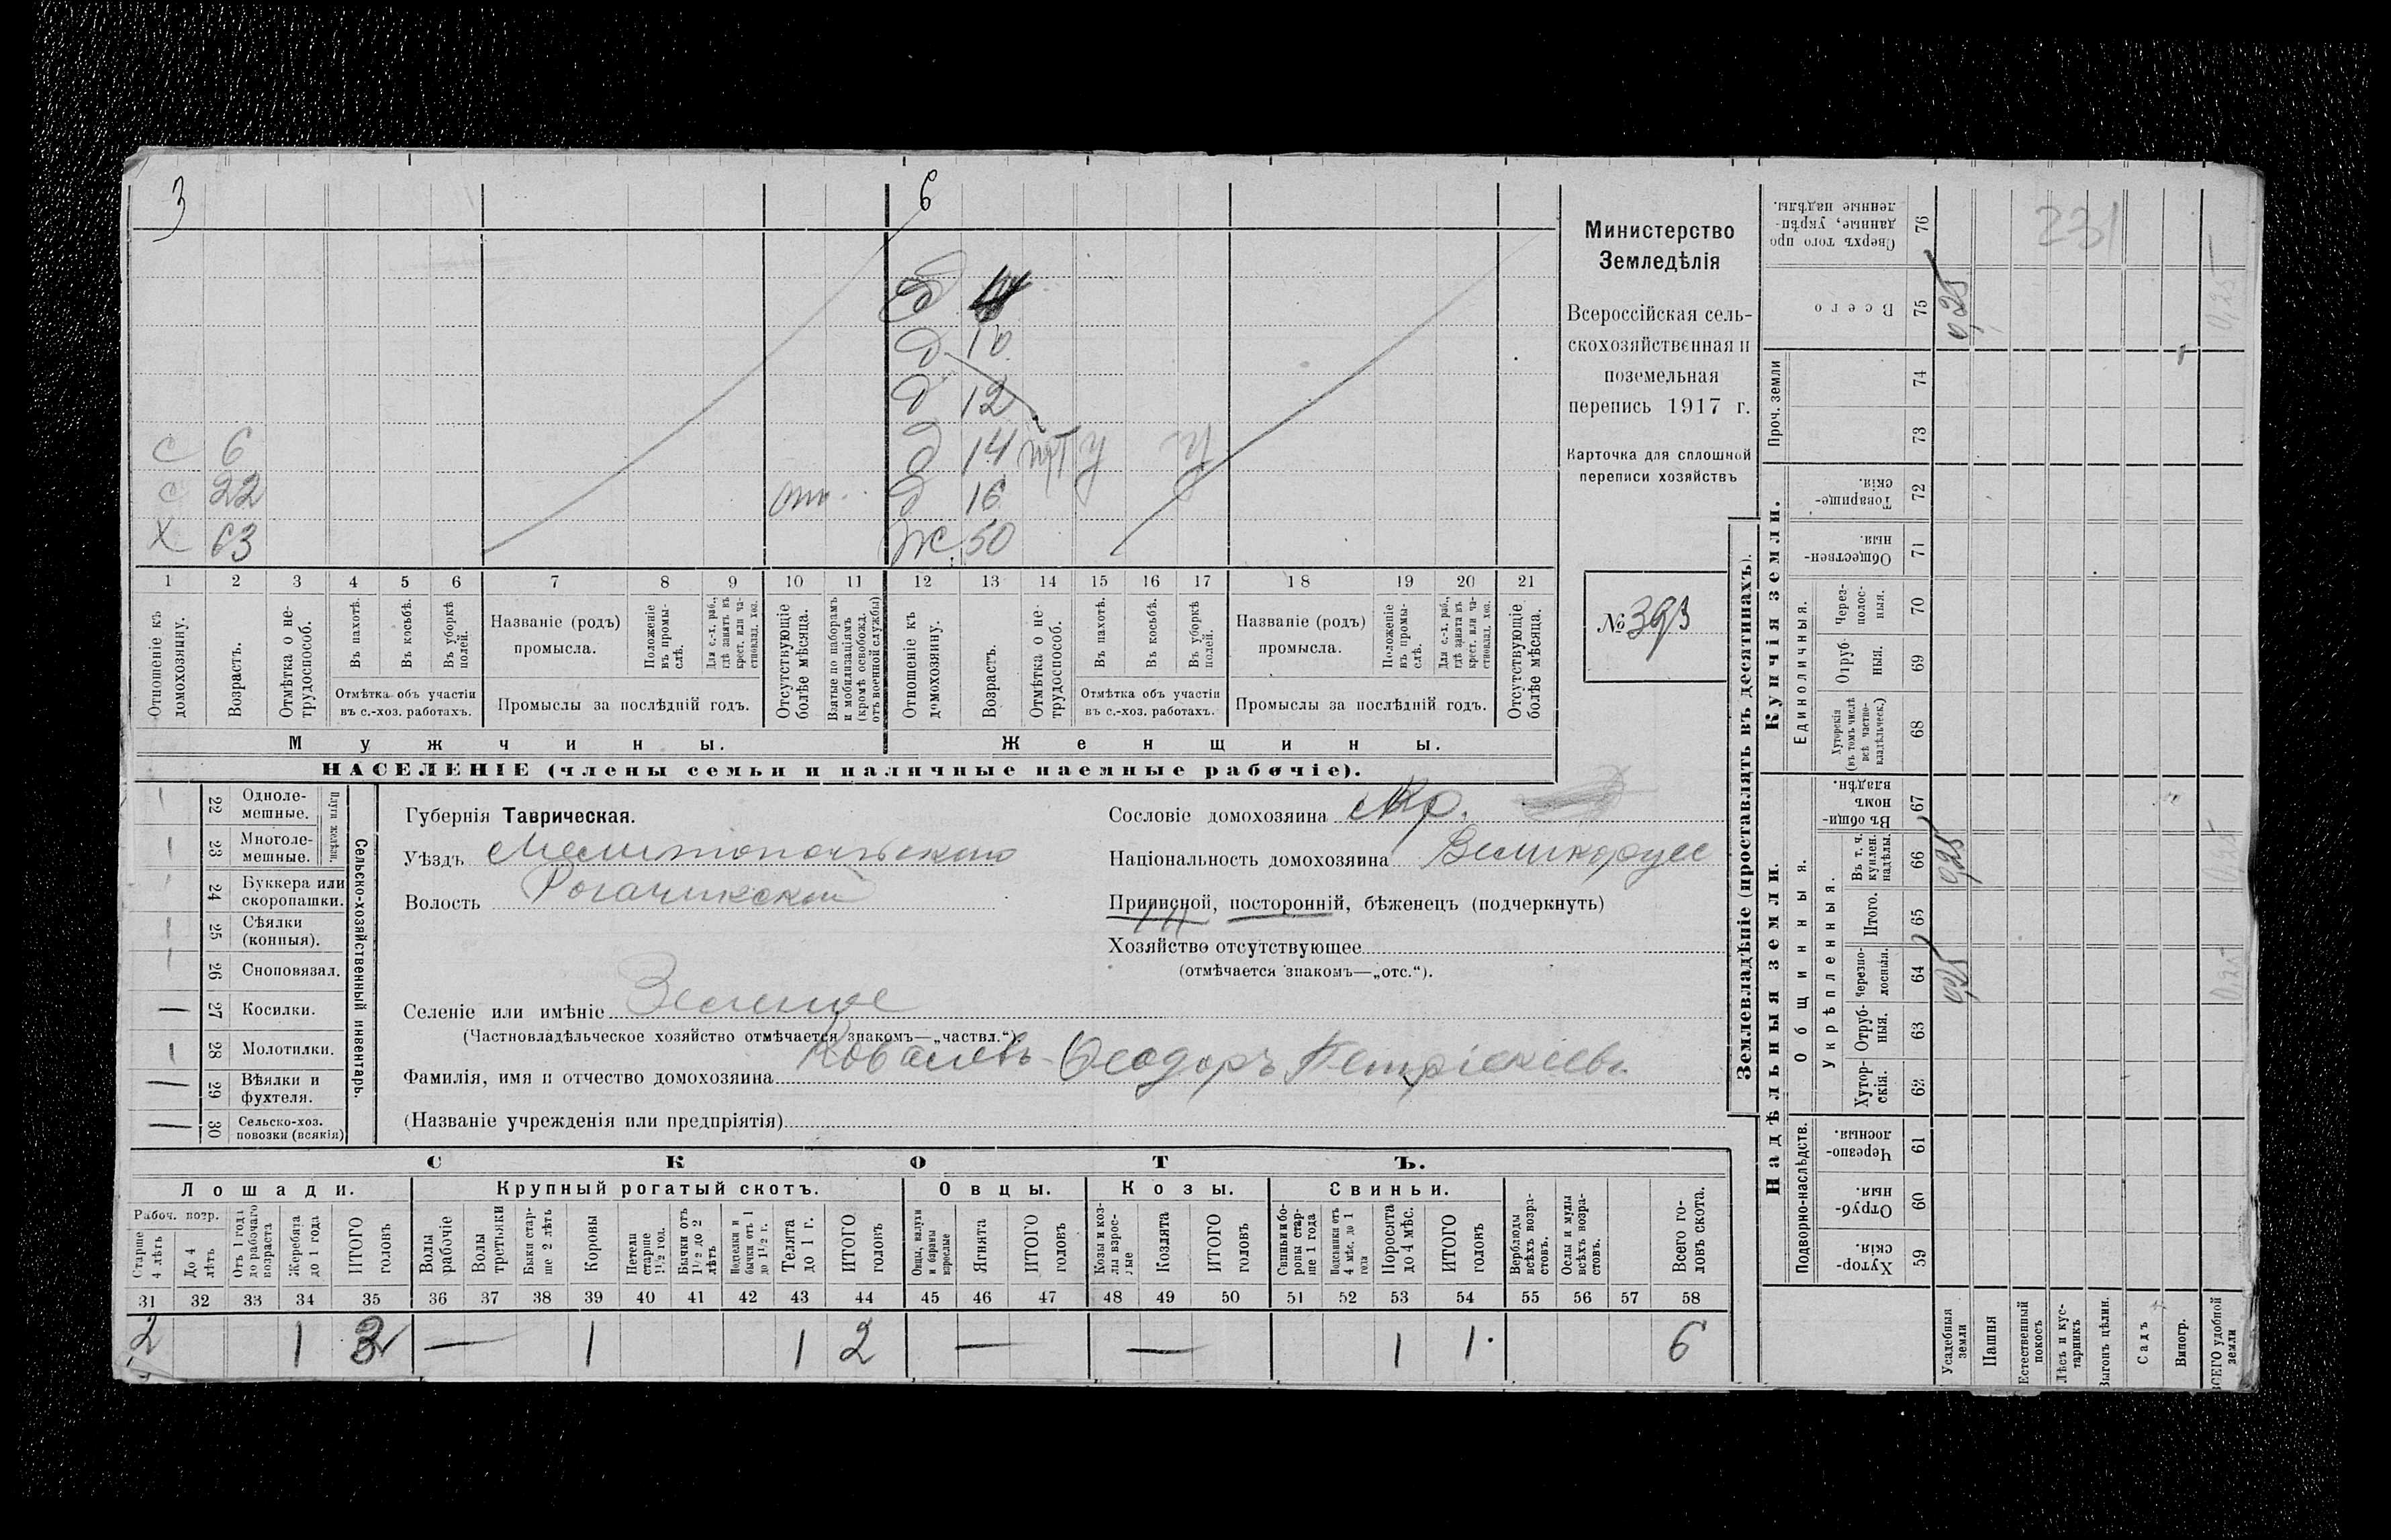 3
6
д
д 10
д 12
с 6
д 14 у у
с 22
отс
д 16
х 63
ж 50
1 2 3 4 5 6 7 8 9 10 11 12 13 14 15 16 17 18 19 20 21
Отношеніе къ домохозяину.
Возрастъ.
Отмѣтка о не-трудоспособ.
Въ пахотѣ.
Въ косьбѣ.
Въ уборкѣ полей.
Отмѣтка объ участіи
въ с.-хоз. работахъ.
Названіе (родъ)
промысла.
Положеніе въ промы-слѣ.
Для с.-х. раб., гдѣ занятъ въ крест. или ча-стновлад. хоз.
Промыслы за послѣдній годъ.
Отсутствующіе болѣе мѣсяца.
Взятые по наборамъ и мобилизаціямъ (кромѣ освобожд. отъ военной службы)
Отношеніе къ домохозяину.
Возрастъ.
Отмѣтка о не-трудоспособ.
Въ пахотѣ.
Въ косьбѣ.
Въ уборкѣ полей.
Отмѣтка объ участіи
въ с.-хоз. работахъ.
Названіе (родъ)
промысла.
Положеніе въ промы-слѣ.
Для с.-х. раб., гдѣ занята въ крест. или ча-стновлад. хоз.
Промыслы за послѣдній годъ.
Отсутствующіе болѣе мѣсяца.
Мужчины.
Женщины.
НАСЕЛЕНІЕ (члены семьи и наличные наемные рабочіе).
Министерство
Земледѣлія
Всероссійская сель-
скохозяйственная и
поземельная
перепись 1917 г.
Карточка для сплошной
переписи хозяйствъ
№ 393
22 Одноле-мешные.
23 Многоле-мешные.
Плуги желѣзн.
24 Буккера или скоропашки.
25 Сѣялки (конныя).
26 Сноповязал.
27 Косилки.
28 Молотилки.
29 Вѣялки и фухтеля.
30 Сельско-хоз. повозки (всякія)
Сельско-хозяйственный инвентарь.
Губернія Таврическая.
Уѣздъ Мелитопольскаго
Волость Рогачикской
Селеніе или имѣніе Зеленое
(Частновладѣльческое хозяйство отмѣчается знакомъ—„частвл.“).
Фамилія, имя и отчество домохозяина Ковалевъ Ѳеодоръ
(Названіе учрежденія или предпріятія)
Сословіе домохозяина Кр.
Національность домохозяина Великорусс
Приписной, посторонній, бѣженецъ (подчеркнуть)
Хозяйство отсутствующее
(отмѣчается знакомъ—„отс.“).
СКОТЪ.
Лошади.
Крупный рогатый скотъ.
Овцы.
Козы.
Свиньи.
Рабоч. возр.
Старше 4 лѣтъ
До 4 лѣтъ
Отъ 1 года до рабочаго возраста
Жеребята до 1 года
ИТОГО головъ
Волы рабочіе
Волы третьяки
Быки стар-ше 2 лѣтъ
Коровы
Нетели старше 1½ год.
Бычки отъ 1½ до 2 лѣтъ
Подтелки и бычки отъ 1 до 1½ г.
Телята до 1 г.
ИТОГО головъ
Овцы, валухи и бараны взрослые
Ягнята
ИТОГО головъ
Козы и коз-лы взрос-лые
Козлята
ИТОГО головъ
Свиньи и бо-ровы стар-ше 1 года
Подсвинки отъ 4 мѣс. до 1 года
Поросята до 4 мѣс.
ИТОГО головъ
Верблюды всѣхъ возра-стовъ.
Ослы и мулы всѣхъ возра-стовъ.
Всего го-ловъ скота.
31 32 33 34 35 36 37 38 39 40 41 42 43 44 45 46 47 48 49 50 51 52 53 54 55 56 57 58
2 1 3 — 1 1 2 — — 1 1 6
Землевладѣніе (проставлять въ десятинахъ).
Надѣльныя земли.
Купчія земли.
Подворно-наслѣдств.
Общинныя.
Укрѣпленныя.
Единоличныя.
Проч. земли
Хутор-скія. 59
Отруб-ныя. 60
Черезпо-лосныя. 61
Хутор-скія. 62
Отруб-ныя. 63
Черезпо-лосныя. 64
Итого. 65
Въ т. ч. куплен. надѣлы. 66
Въ общи-номъ владѣн. 67
Хуторскія (въ томъ числѣ всѣ частно-владѣльческ.) 68
Отруб-ныя. 69
Через-полос-ныя. 70
Обществен-ныя. 71
Товарище-скія. 72
73
74
Всего 75
Сверхъ того про-данные, укрѣп-ленные надѣлы. 76
Усадебныя земли
Пашня
Естественный покосъ
Лѣсъ и кус-тарникъ
Выгонъ цѣлин.
Садъ
Виногр.
ВСЕГО удобной земли
0,25
0,25
0,25
0,25
0,25
0,25
231